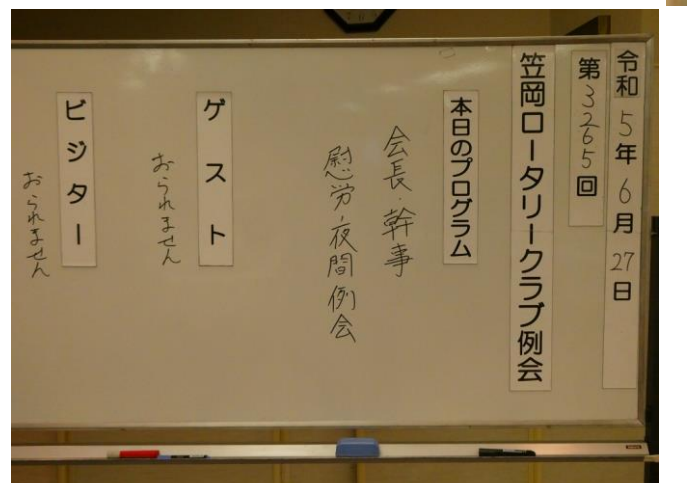 令和5年6月27日
第3265回
笠岡ロータリークラブ例会
本日のプログラム
会長・幹事
慰労夜間例会
ゲスト
おられません
ビジター
おられません